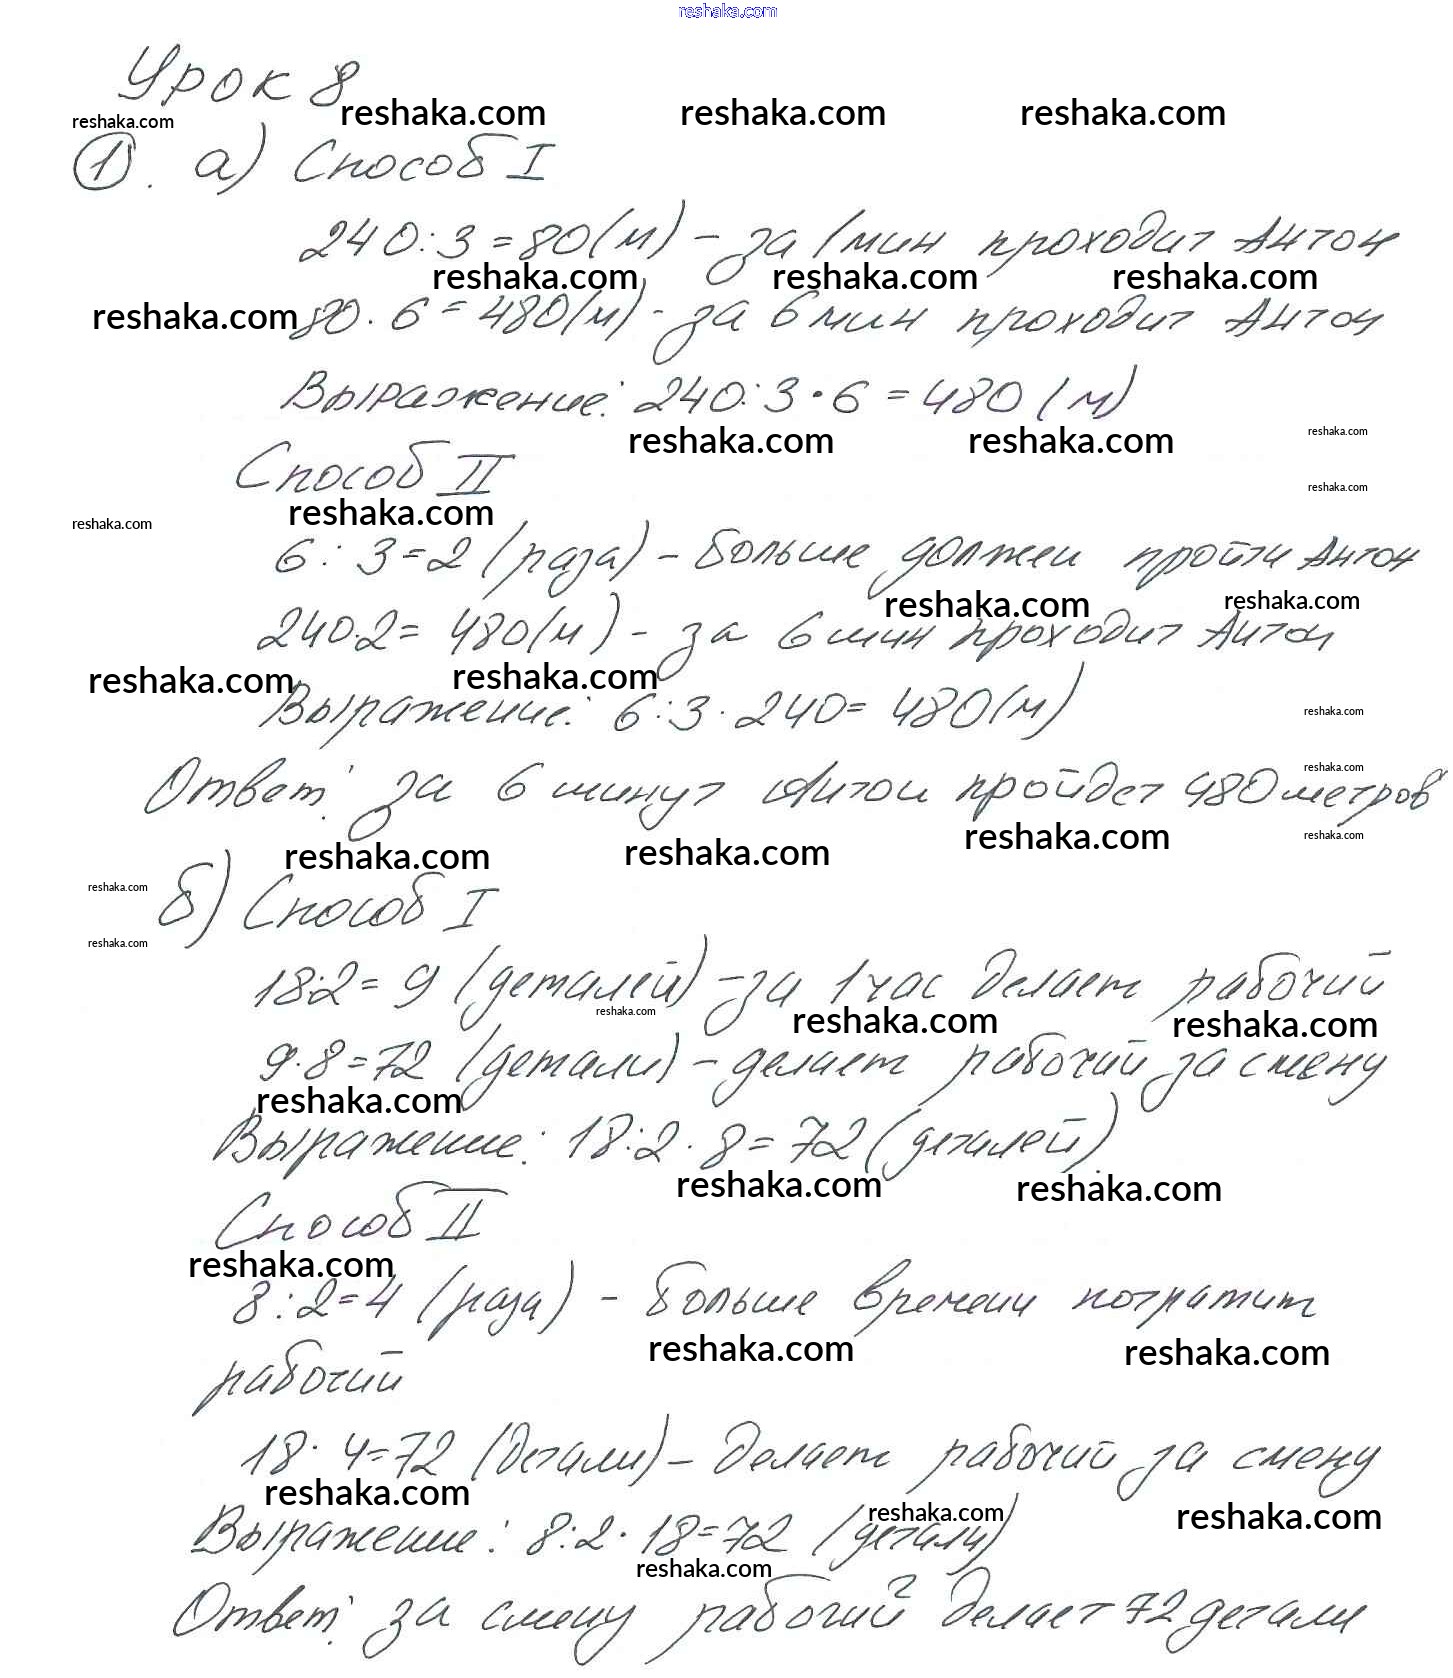 reshaka.com
Урок 8
reshaka.com reshaka.com reshaka.com reshaka.com
1. а) Способ I
240:3=80(м) - за 1 мин проходит Антон
reshaka.com reshaka.com reshaka.com
reshaka.com 80·6=480(м) - за 6 мин проходит Антон
Выражение: 240:3·6=480(м)
reshaka.com reshaka.com reshaka.com
Способ II
reshaka.com
reshaka.com reshaka.com
6:3=2 (раза) - больше должен пройти Антон
reshaka.com reshaka.com
240·2=480(м) - за 6 мин проходит Антон
reshaka.com reshaka.com
Выражение: 6:3·240=480(м)
reshaka.com
Ответ: за 6 минут Антон пройдет 480 метров
reshaka.com
reshaka.com reshaka.com reshaka.com reshaka.com
reshaka.com
б) Способ I
reshaka.com
18:2=9 (деталей) - за 1 час делает рабочий
reshaka.com reshaka.com reshaka.com
9·8=72 (детали) - делает рабочий за смену
reshaka.com
Выражение: 18:2·8=72 (деталей)
reshaka.com reshaka.com
Способ II
reshaka.com
8:2=4 (раза) - больше времени потратит
reshaka.com reshaka.com
рабочий
18·4=72 (детали) - делает рабочий за смену
reshaka.com reshaka.com reshaka.com
Выражение: 8:2·18=72 (детали)
reshaka.com
Ответ: за смену рабочий делает 72 детали